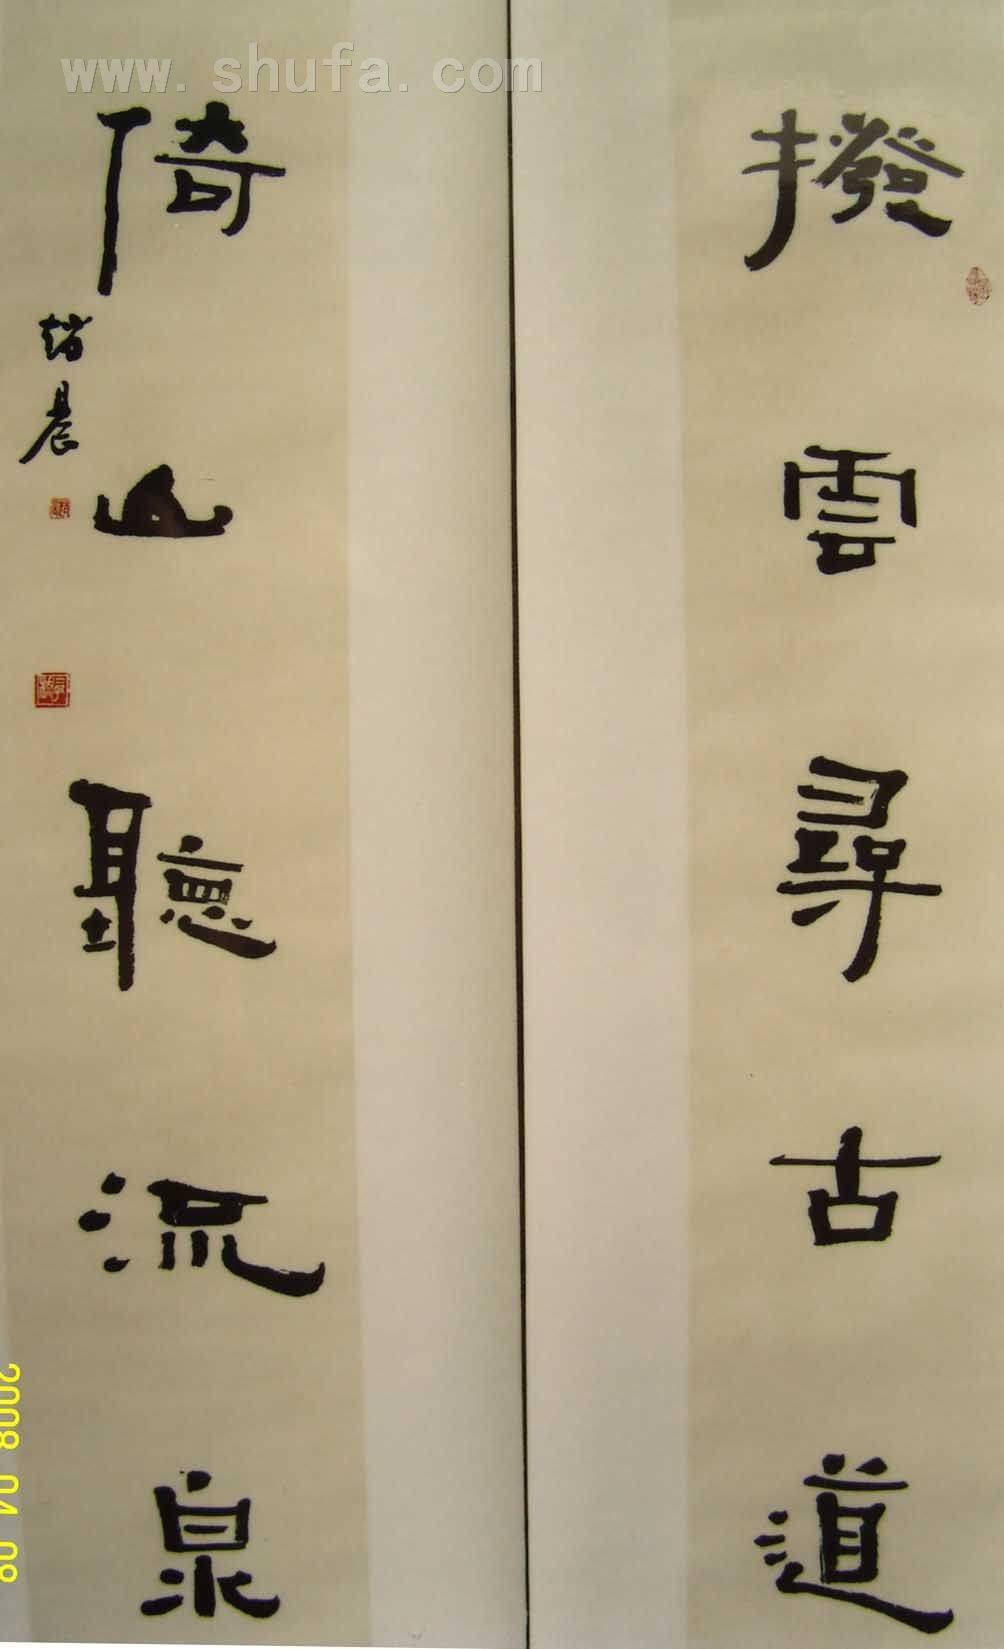 www.shufa.com
撥雲尋古道
倚山聽流泉
2008 04 08